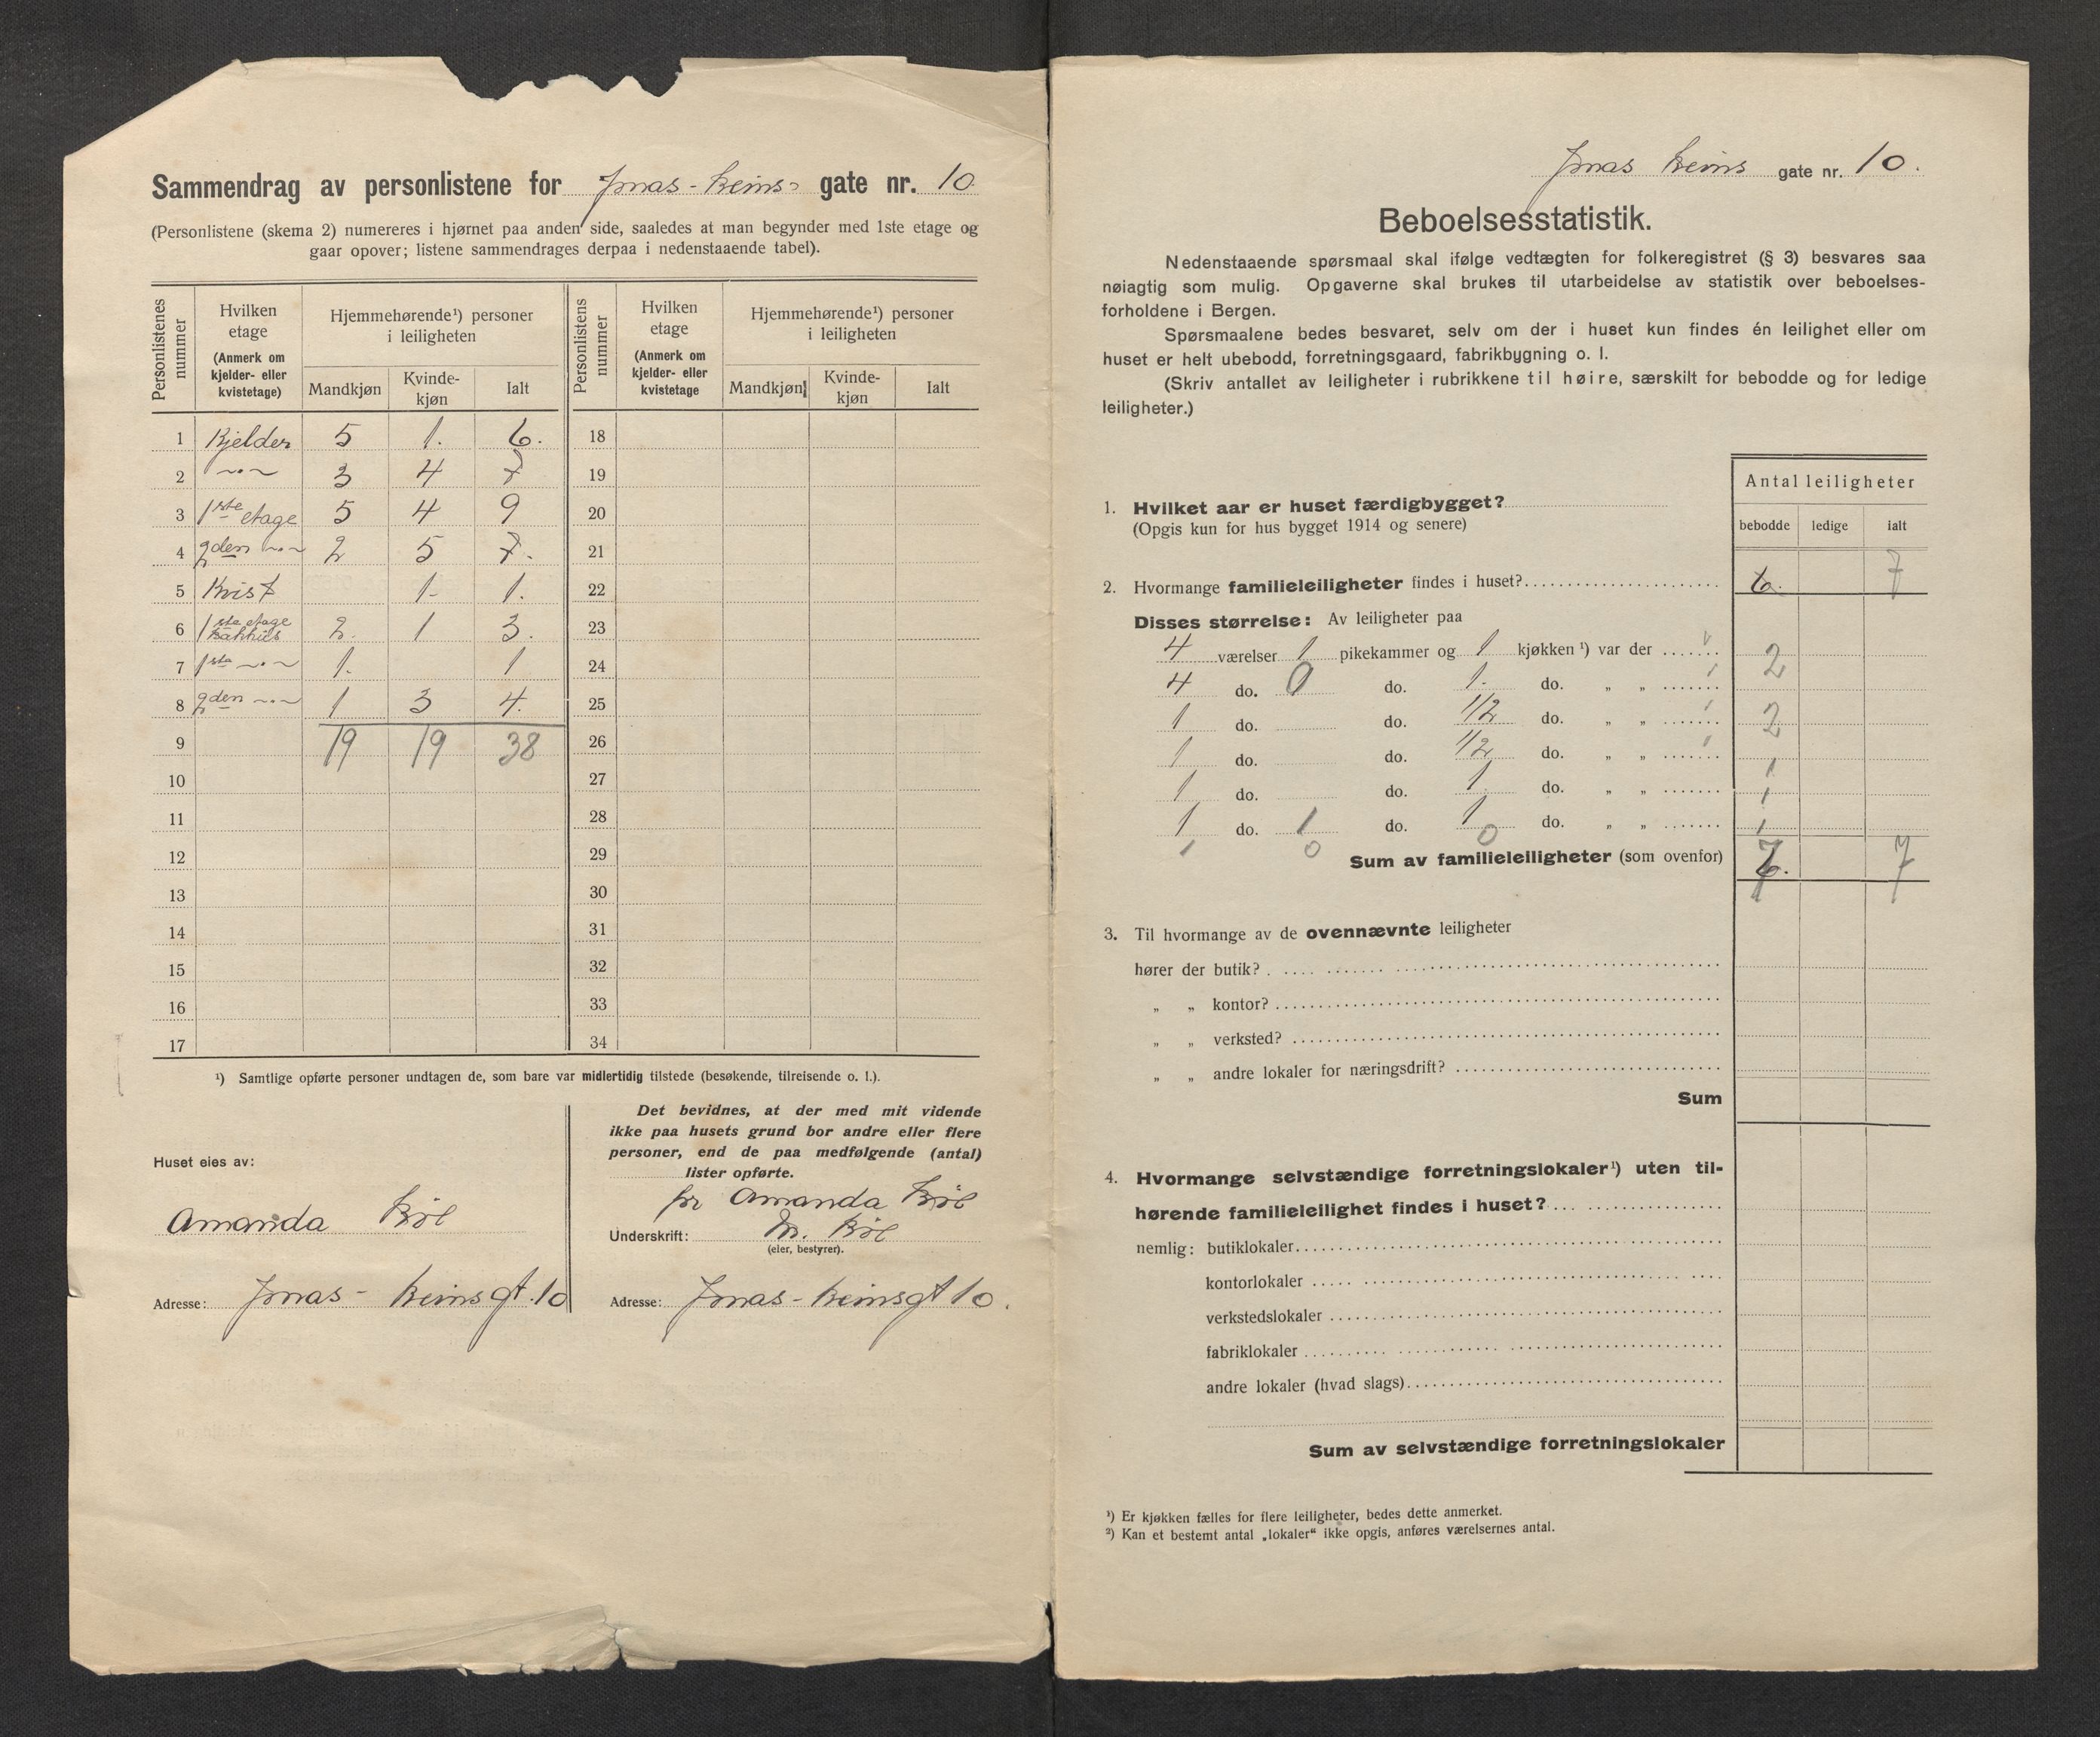 Sammendrag av personlistene for Jonas-Reins- gate nr. 10.
(Personlistene (skema 2) numereres i hjørnet paa anden side, saaledes at man begynder med 1ste etage og
gaar opover; listene sammendrages derpaa i nedenstaaende tabel).
Personlistenes nummer | Hvilken etage (Anmerk om kjelder- eller kvistetage) | Hjemmehørende¹) personer i leiligheten | Mandkjøn | Kvinde-kjøn | Ialt
Personlistens nummer | Hvilken etage (Anmerk om kjelder- eller kvistetage | Hjemmehørende¹) personer i leiligheten | Mandkjøn | Kvinde-kjøn | Ialt
1 Kjelder 5 1. 6. 18
2 〃 3 4 7 19
3 1ste etage 5 4 9 20
4 2den 〃 2 5 7. 21
5 Kvist 1- 1. 22
6 1ste etage Bakhus 2. 1 3. 23
7 1ste 〃 1. 1 24
8 2den 〃 1 3 4. 25
9 19 19 38 26
10 27
11 28
12 29
13 30
14 31
15 32
16 33
17 34
¹) Samtlige opførte personer undtagen de, som bare var midlertidig tilstede (besøkende, tilreisende o. l.).
Huset eies av:
Amanda Bøe
Adresse: Jonas-Reinsgt. 10
Det bevidnes, at der med mit vidende
ikke paa husets grund bor andre eller flere
personer, end de paa medfølgende (antal)
lister opførte.
pr Amanda Bøe
Underskrift: M. Bøe
(eier, bestyrer).
Adresse: Jonas-Reinsgt 10.
Jonas Reins gate nr. 10.
Beboelsesstatistik.
Nedenstaaende spørsmaal skal ifølge vedtægten for folkeregistret (§ 3) besvares saa
nøiagtig som mulig. Opgaverne skal brukes til utarbeidelse av statistik over beboelses-
forholdene i Bergen.
Spørsmaalene bedes besvaret, selv om der i huset kun findes én leilighet eller om
huset er helt ubebodd, forretningsgaard, fabrikbygning o. l.
(Skriv antallet av leiligheter i rubrikkene til høire, særskilt for bebodde og for ledige
leiligheter.)
Antal leiligheter
bebodde ledige ialt
1. Hvilket aar er huset færdigbygget?
(Opgis kun for hus bygget 1914 og senere)
2. Hvormange familieleiligheter findes i huset? 6. 7
Disses størrelse: Av leiligheter paa
4 værelser 1 pikekammer og 1 kjøkken ¹) var der 2
4 do. 0 do. 1. do. „ „
1 do. do. 1/2 do. „ „ 2
1 do. do. 1/2 do. „ „
1 do. do. 1 do. „ „ 1
1 do. 1 do. 1 do. „ „ 1
1 0 0 1
Sum av familieleiligheter (som ovenfor) 6. 7 7
3. Til hvormange av de ovennævnte leiligheter
hører der butik?
„ „ kontor?
„ „ verksted?
„ „ andre lokaler for næringsdrift?
Sum
4. Hvormange selvstændige forretningslokaler¹) uten til-
hørende familieleilighet findes i huset?
nemlig: butiklokaler
kontorlokaler
verkstedslokaler
fabriklokaler
andre lokaler (hvad slags)
Sum av selvstændige forretningslokaler
¹) Er kjøkken fælles for flere leiligheter, bedes dette anmerket.
²) Kan et bestemt antal „lokaler“ ikke opgis, anføres værelsernes antal.